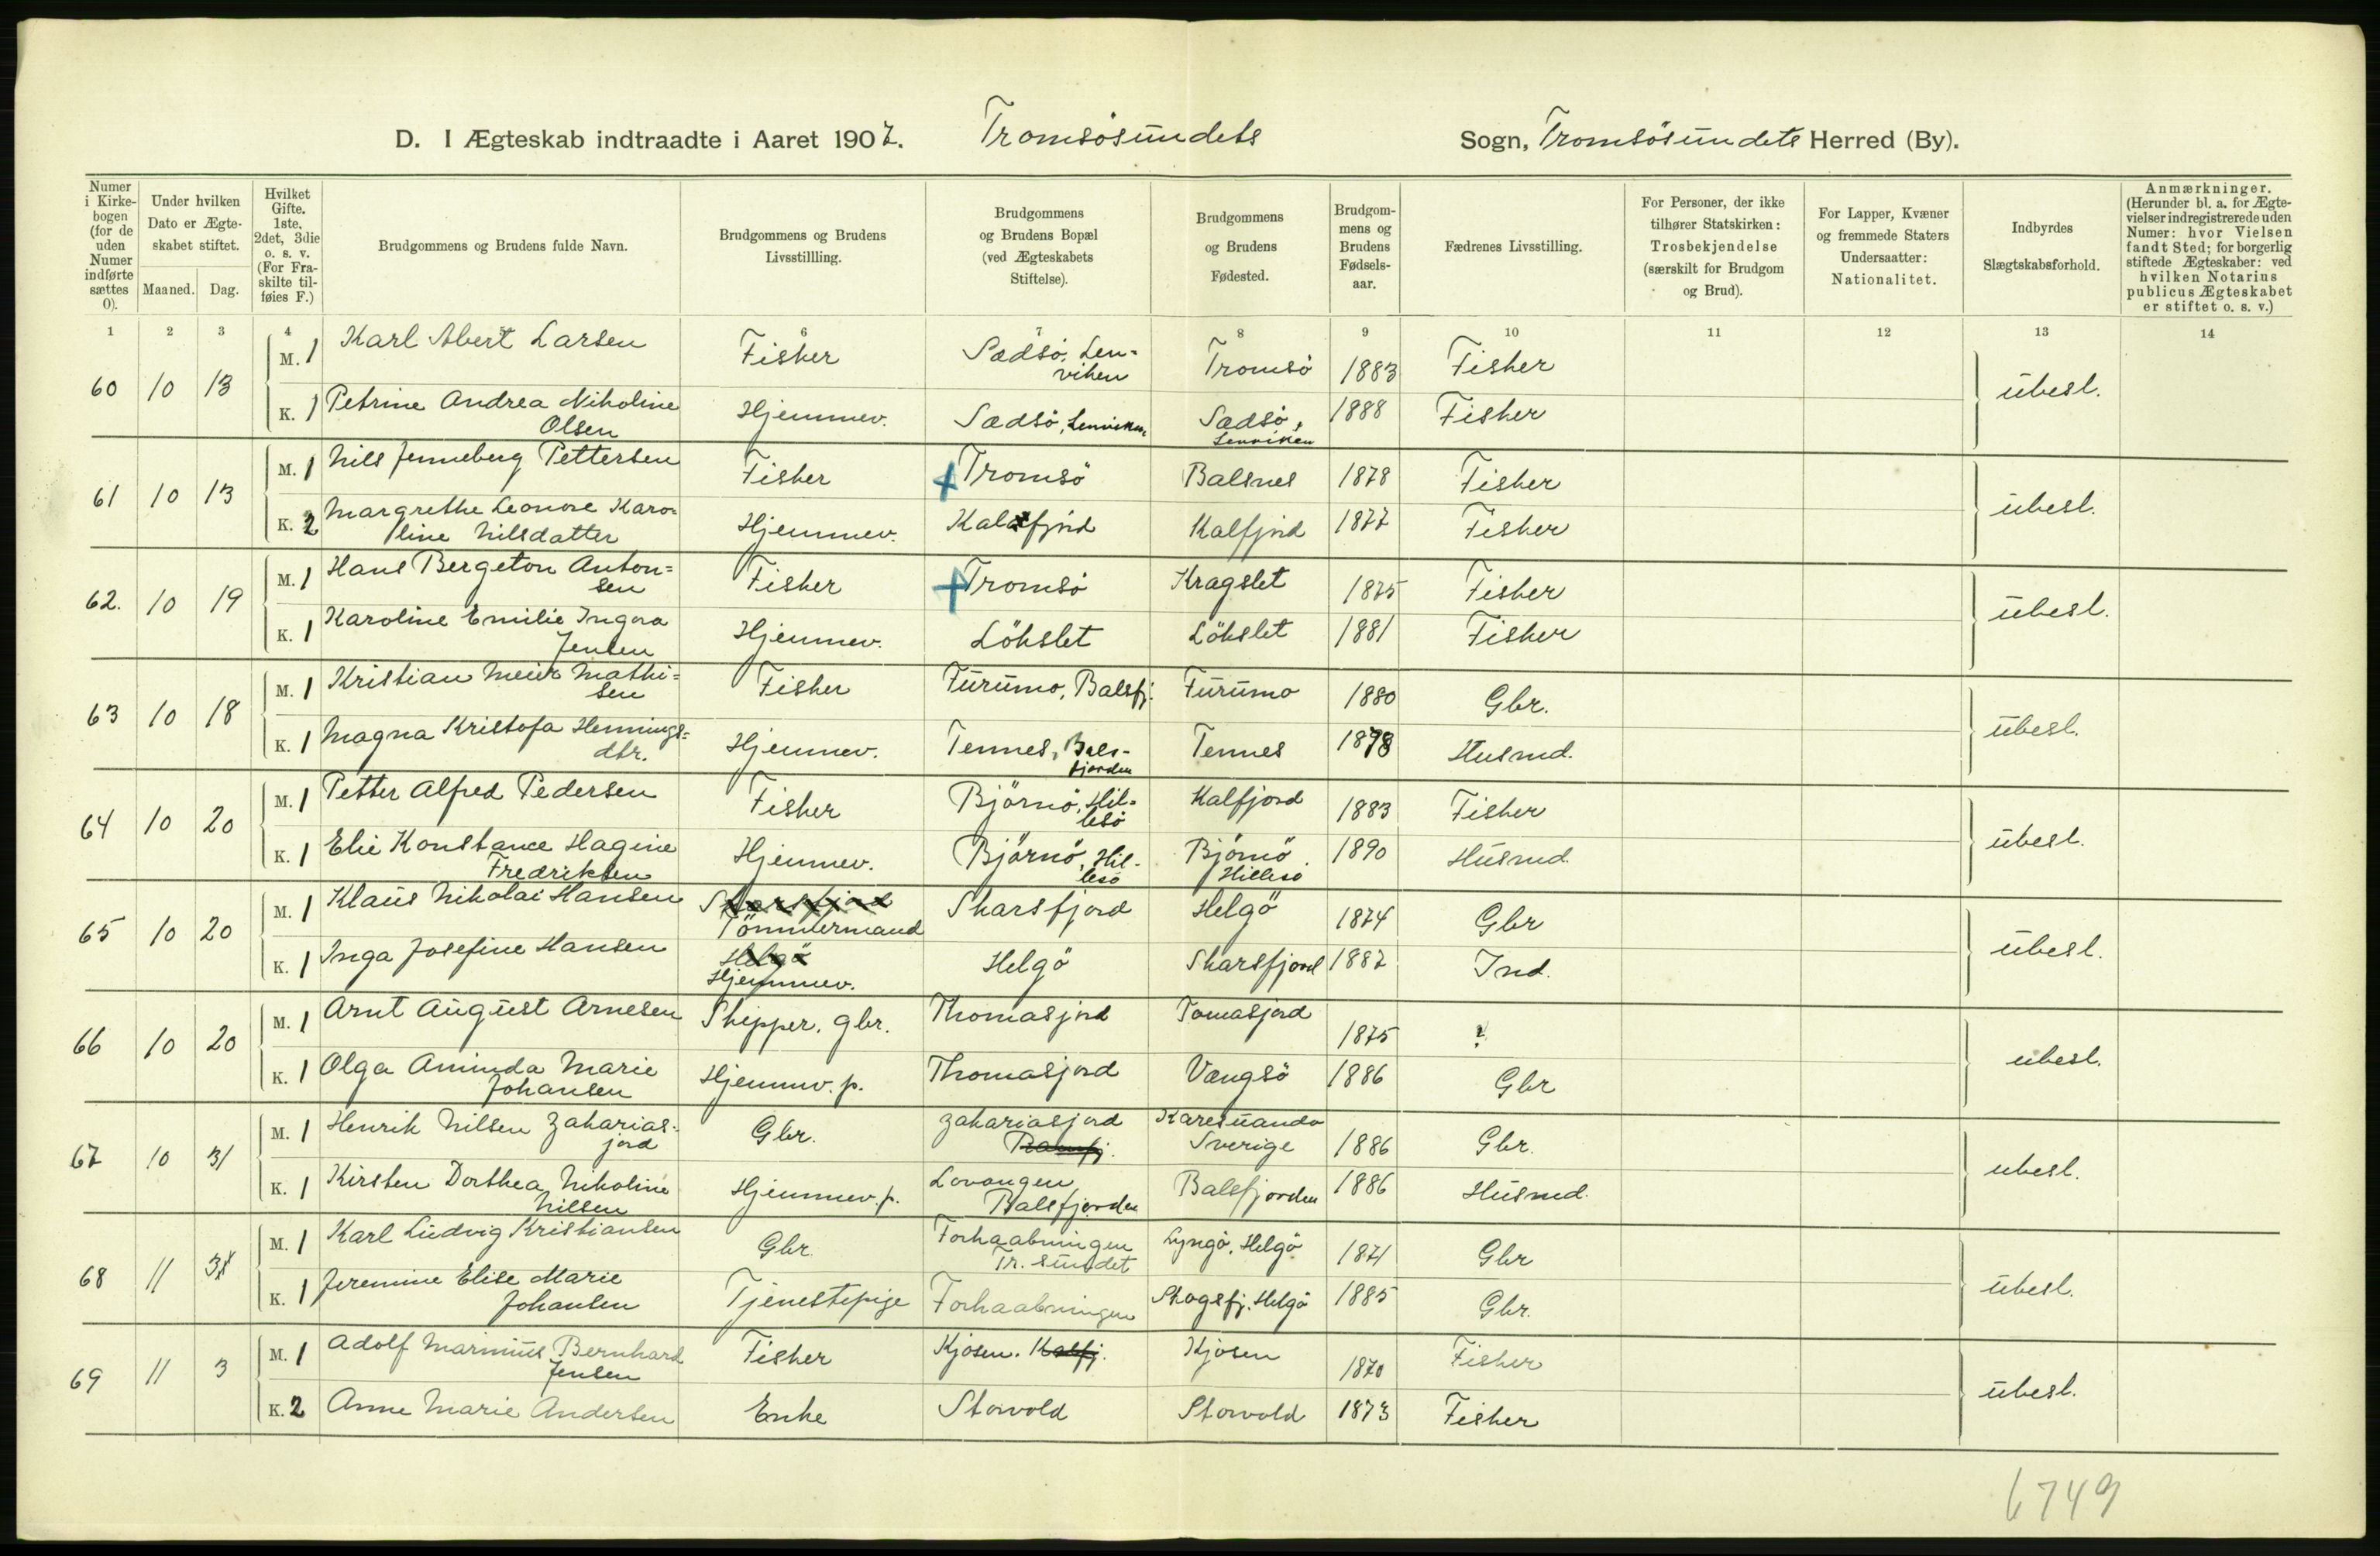 D. I Ægteskab indtraadte i Aaret 1907. Tromsösundets Sogn, Tromsösundets Herred (By).
Numer i Kirkebogen (for de uden Numer indførte sættes 0).
Under hvilken Dato er Ægteskabet stiftet.
Maaned. Dag.
Hvilket Gifte. 1ste, 2det, 3die o. s. v. (For Fraskilte tilføies F.)
Brudgommens og Brudens fulde Navn.
Brudgommens og Brudens Livsstillling.
Brudgommens og Brudens Bopæl (ved Ægteskabets Stiftelse).
Brudgommens og Brudens Fødested.
Brudgommens og Brudens Fødselsaar.
Fædrenes Livsstilling.
For Personer, der ikke tilhører Statskirken: Trosbekjendelse (særskilt for Brudgom og Brud).
For Lapper, Kvæner og fremmede Staters Undersaatter: Nationalitet.
Indbyrdes Slægtskabsforhold.
Anmærkninger. (Herunder bl. a. for Ægtevielser indregistrerede uden Numer: hvor Vielsen fandt Sted; for borgerlig stiftede Ægteskaber: ved hvilken Notarius publicus Ægteskabet er stiftet o. s. v.)
1 2 3 4 5 6 7 8 9 10 11 12 13 14
60 10 13 M. 1 Karl Abert Larsen Fisker Sædsö, Lenviken Tromsö 1883 Fisker ubesl.
K. 1 Petrine Andrea Nikoline Olsen Hjemmev. Sædsö, Lenviken Sædsö, Lenviken 1888 Fisker
61 10 13 M. 1 Nils Jenneberg Pettersen Fisker Tromsö Balsnes 1878 Fisker ubesl.
K. 2 Margrethe Leonore Karoline Nilsdatter Hjemmev. Kalfjord Kalfjord 1877 Fisker
62. 10 19 M. 1 Hans Bergeton Antonsen Fisker Tromsö Kragslet 1875 Fisker ubesl.
K. 1 Karoline Emilie Ingova Jensen Hjemmev. Lökslet Lökslet 1881 Fisker
63 10 18 M. 1 Kristian Meier Mathisen Fisker Furumo, Balsfj. Furumo 1880 Gbr. ubesl.
K. 1 Magna Kristofa Henningsdtr. Hjemmev. Tennes, Balsfjorden Tennes 1878 Husmd.
64 10 20 M. 1 Petter Alfred Pedersen Fisker Björnö, Hillesö Kalfjord 1883 Fisker ubesl.
K. 1 Elie Konstance Hagine Fredriksen Hjemmev. Björnö, Hillesö Björnö, Hillesö 1890 Husmd.
65 10 20 M. 1 Klaus Nikolai Hansen Skarsfjord Tömmermand Skarsfjord Helgö 1874 Gbr ubesl.
K. 1 Inga Josefine Hansen Helgö Hjemmev. Helgö Skarsfjord 1887 Ind.
66 10 20 M. 1 Arnt August Arnesen Skipper, gbr. Thomasjord Tomasjord 1875 ? ubesl.
K. 1 Olga Aminda Marie Johansen Hjemmv. p. Thomasjord Vængsö 1886 Gbr
67 10 31 M. 1 Henrik Nilsen Zakariasjord Gbr. Zakariasjord Ramfj. Karesuando Sverige 1886 Gbr. ubesl.
K. 1 Kirsten Dorthea Nikoline Nilsen Hjemmev. p. Lovangen Balsfjorden Balsfjorden 1886 Husmd.
68 11 3 M. 1 Karl Ludvig Kristiansen Gbr. Forhaabningen Tr. sundet Lyngö, Helgö 1871 Gbr ubesl.
K. 1 Jeremine Elise Marie Johansen Tjenestepige Forhaabningen Skogsfj. Helgö 1885 Gbr.
69 11 3 M. 1 Adolf Marinius Bernhard Jensen Fisker Kjosen. Kalfj. Kjosen 1870 Fisker ubesl.
K. 2 Anne Marie Andersen Enke Storvold Storvold 1873 Fisker
6749